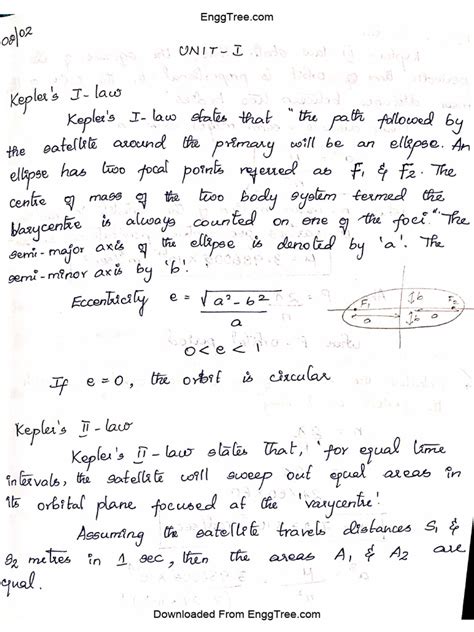 EnggTree.com
08/02
UNIT-I
Kepler's I-law
Kepler's I-law states that "the path followed by
the satellite around the primary will be an ellipse. An
ellipse has two focal points referred as F1 & F2. The
centre of mass of the two body system termed the
barycentre is always counted on one of the foci". The
semi-major axis of the ellipse is denoted by 'a'. The
semi-minor axis by 'b'.
Eccentricity e = √(a² - b²) / a
F1 b F2
a b a
0 < e < 1
If e = 0, the orbit is circular
Kepler's II-law
Kepler's II-law states that, 'for equal time
intervals, the satellite will sweep out equal areas in
its orbital plane focused at the 'varycentre'.
Assuming the satellite travels distances S1 &
S2 metres in 1 sec, then the areas A1 & A2 are
equal.
Downloaded From EnggTree.com